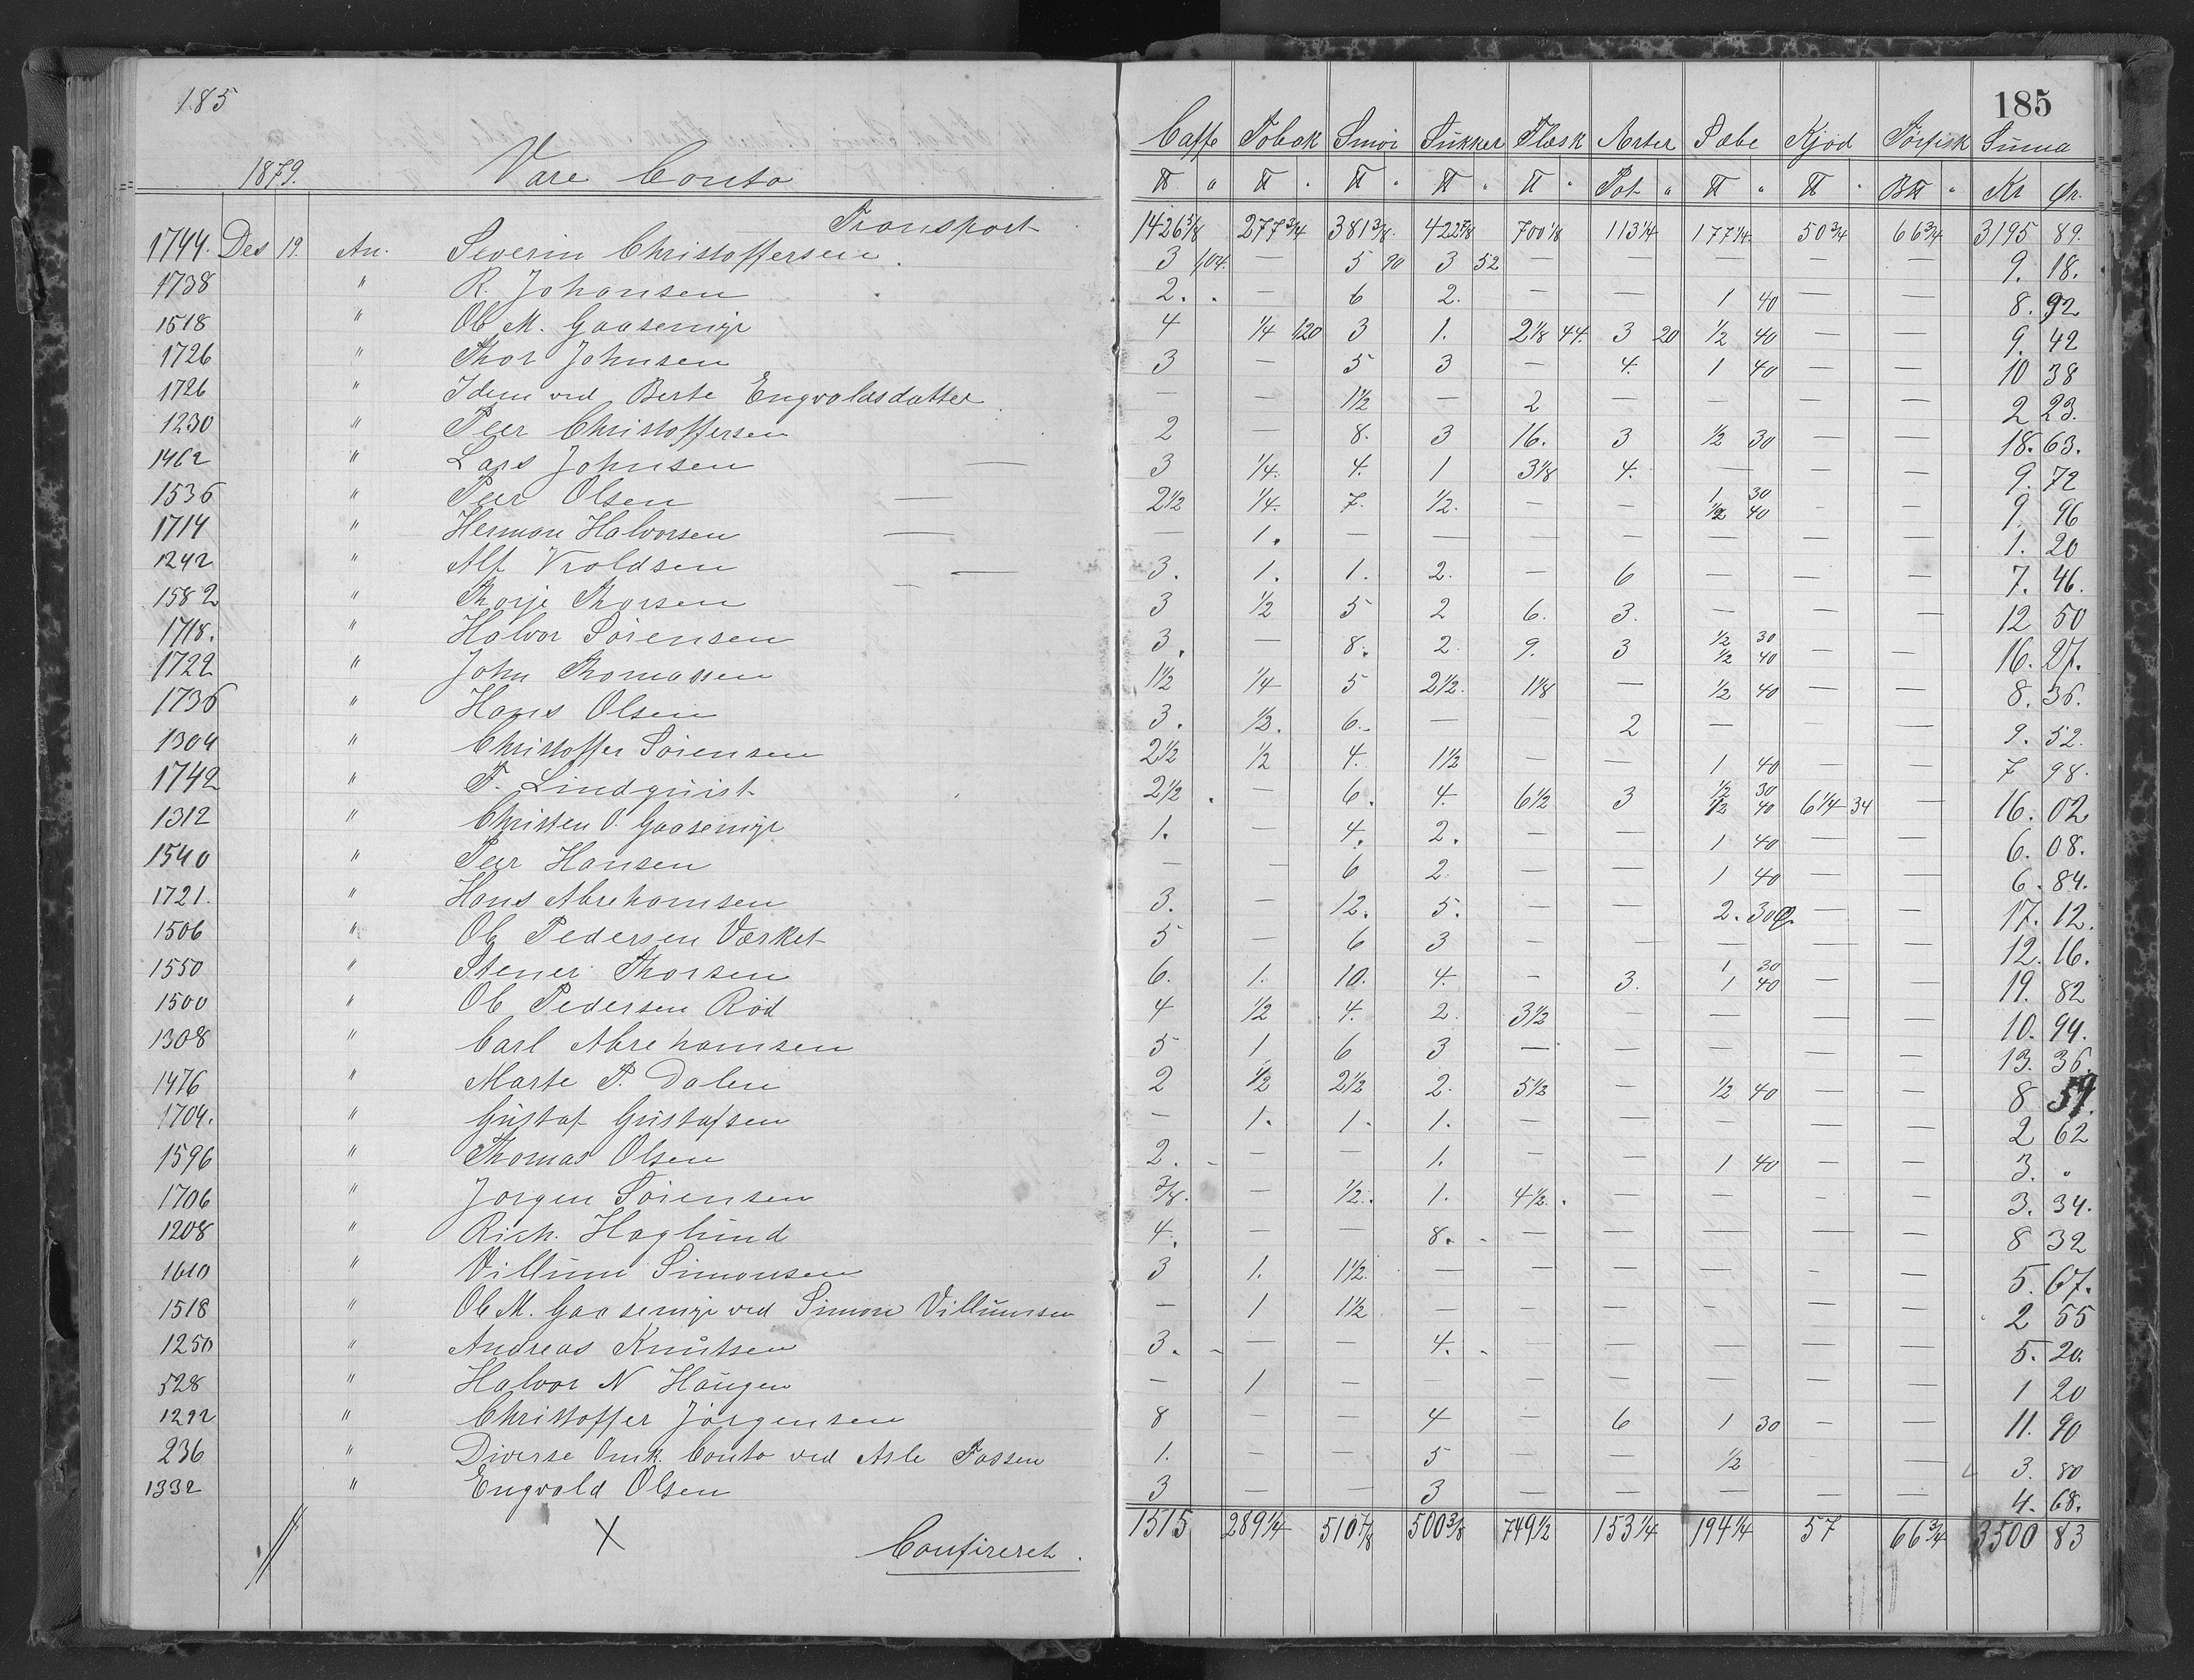 185
185
1879. Vare Conto Caffe Tobak Smør Sukker Flæsk Aerter Sæbe Kjød Tørfisk Suma
℔ " ℔ " ℔ " ℔ " ℔ " Pot " ℔ " ℔ " B℔ " Kr Ør.
Transport 1426 3/8 277 3/4 381 3/8 422 7/8 700 1/8 113 1/4 177 1/4 50 3/4 66 3/4 3195 89.
1744. Des 19. An. Severin Christoffersen. 3 104. — 5 90 3 52 — — — — — 9. 18.
1738 " R. Johansen 2. — 6 2. — — 1 40 — — 8. 92
1518 " Ole M. Gaasemyr 4 1/4 120 3 1. 2 1/8 44. 3 20 1/2 40 — — 9. 42
1726 " Thor Johnsen 3 — 5 3 — 4. 1 40 — — 10 38
1726 " Idem ved Berte Engvoldsdatter — — 1 1/2 — 2 — — — — 2 23.
1230 " Peer Christoffersen 2 — 8. 3 16. 3 1/2 30 — — 18. 63.
1462 " Lars Johnsen — 3 1/4. 4. 1 3 1/8 4. — — — 9. 72
1536 " Peer Olsen — 2 1/2 1/4. 7. 1/2. — — 1 30 1/2 40 — — 9. 96
1714 " Herman Halvorsen — — 1. — — — — — — — 1. 20
1242 " Alf Vroldsen — 3. 1. 1. 2. — 6 — — — 7. 46.
1582 " Thorje Thorsen — 3 1/2 5 2 6. 3. — — — 12 50
1718. " Halvor Sørensen 3. — 8. 2. 9. 3 1/2 30 1/2 40 — — 16. 27.
1722 " John Thomassen 1 1/2 1/4 5 2 1/2. 1 1/8 — 1/2 40 — — 8. 36.
1736 " Hans Olsen 3. 1/2. 6. — — 2 — — — 9. 52.
1304 " Christoffer Sørensen 2 1/2 1/2 4. 1 1/2 — — 1 40 — — 7 98.
1742 " F. Lindquist 2 1/2. — 6. 4. 6 1/2 3 1/2 30 1/2 40 6 1/4 34 — 16. 02
1312 " Christen O. Gaasemyr 1. — 4. 2. — — 1 40 — — 6. 08.
1540 " Peer Hansen — — 6 2. — — 1 40 — — 6. 84.
1721. " Hans Abrehamsen 3. — 12. 5. — — 2. 30 — — 17. 12.
1506 " Ole Pedersen Værket 5 — 6 3 — — — — — 12. 16.
1550 " Stener Thorsen 6. 1. 10. 4. — 3. 1 30 1 40 — — 19. 82
1500 " Ole Pedersen Rød 4 1/2 4. 2. 3 1/2 — — — — 10. 94.
1308 " Carl Abrehamsen 5 1 6 3 — — — — — 13. 36.
1476 " Marte P. Dalen 2 1/2 2 1/2 2. 5 1/2 — 1/2 40 — — 8
1704. " Gustaf Gustafsen — 1. 1. 1. — — — — — 2 62
1596 " Thomas Olsen 2. — — 1. — — 1 40 — — 3. "
1706 " Jørgen Sørensen 3/8. — 1/2. 1. 4 1/2. — — — — 3. 34.
1208 " Rich. Haglund 4. — — 8. — — — — — 8 32
1610 " Villum Simonsen 3 1. 1 1/2. — — — — — — 5. 67.
1518 " Ole M. Gaasemyr ved Simon Villumsen — 1 1 1/2 — — — — — — 2 55
1250 " Andreas Knutsen 3. — — 4. — — — — — 5. 20.
528 " Halvor N Haugen — 1 — — — — — — — 1 20
1292 " Christoffer Jørgensen 8 — — 4 — 6 1 30 — — 11. 90
236 " Diverse Omk. Conto ved Asle Fossen 1. — — 5 — — 1/2 — — 3. 80
1332 " Engvold Olsen 3 — — 3 — — — — — 4. 68.
X Confireret. 1515 289 1/4 510 7/8 500 3/8 749 1/2 153 1/4 194 1/4 57 66 3/4 3500 83